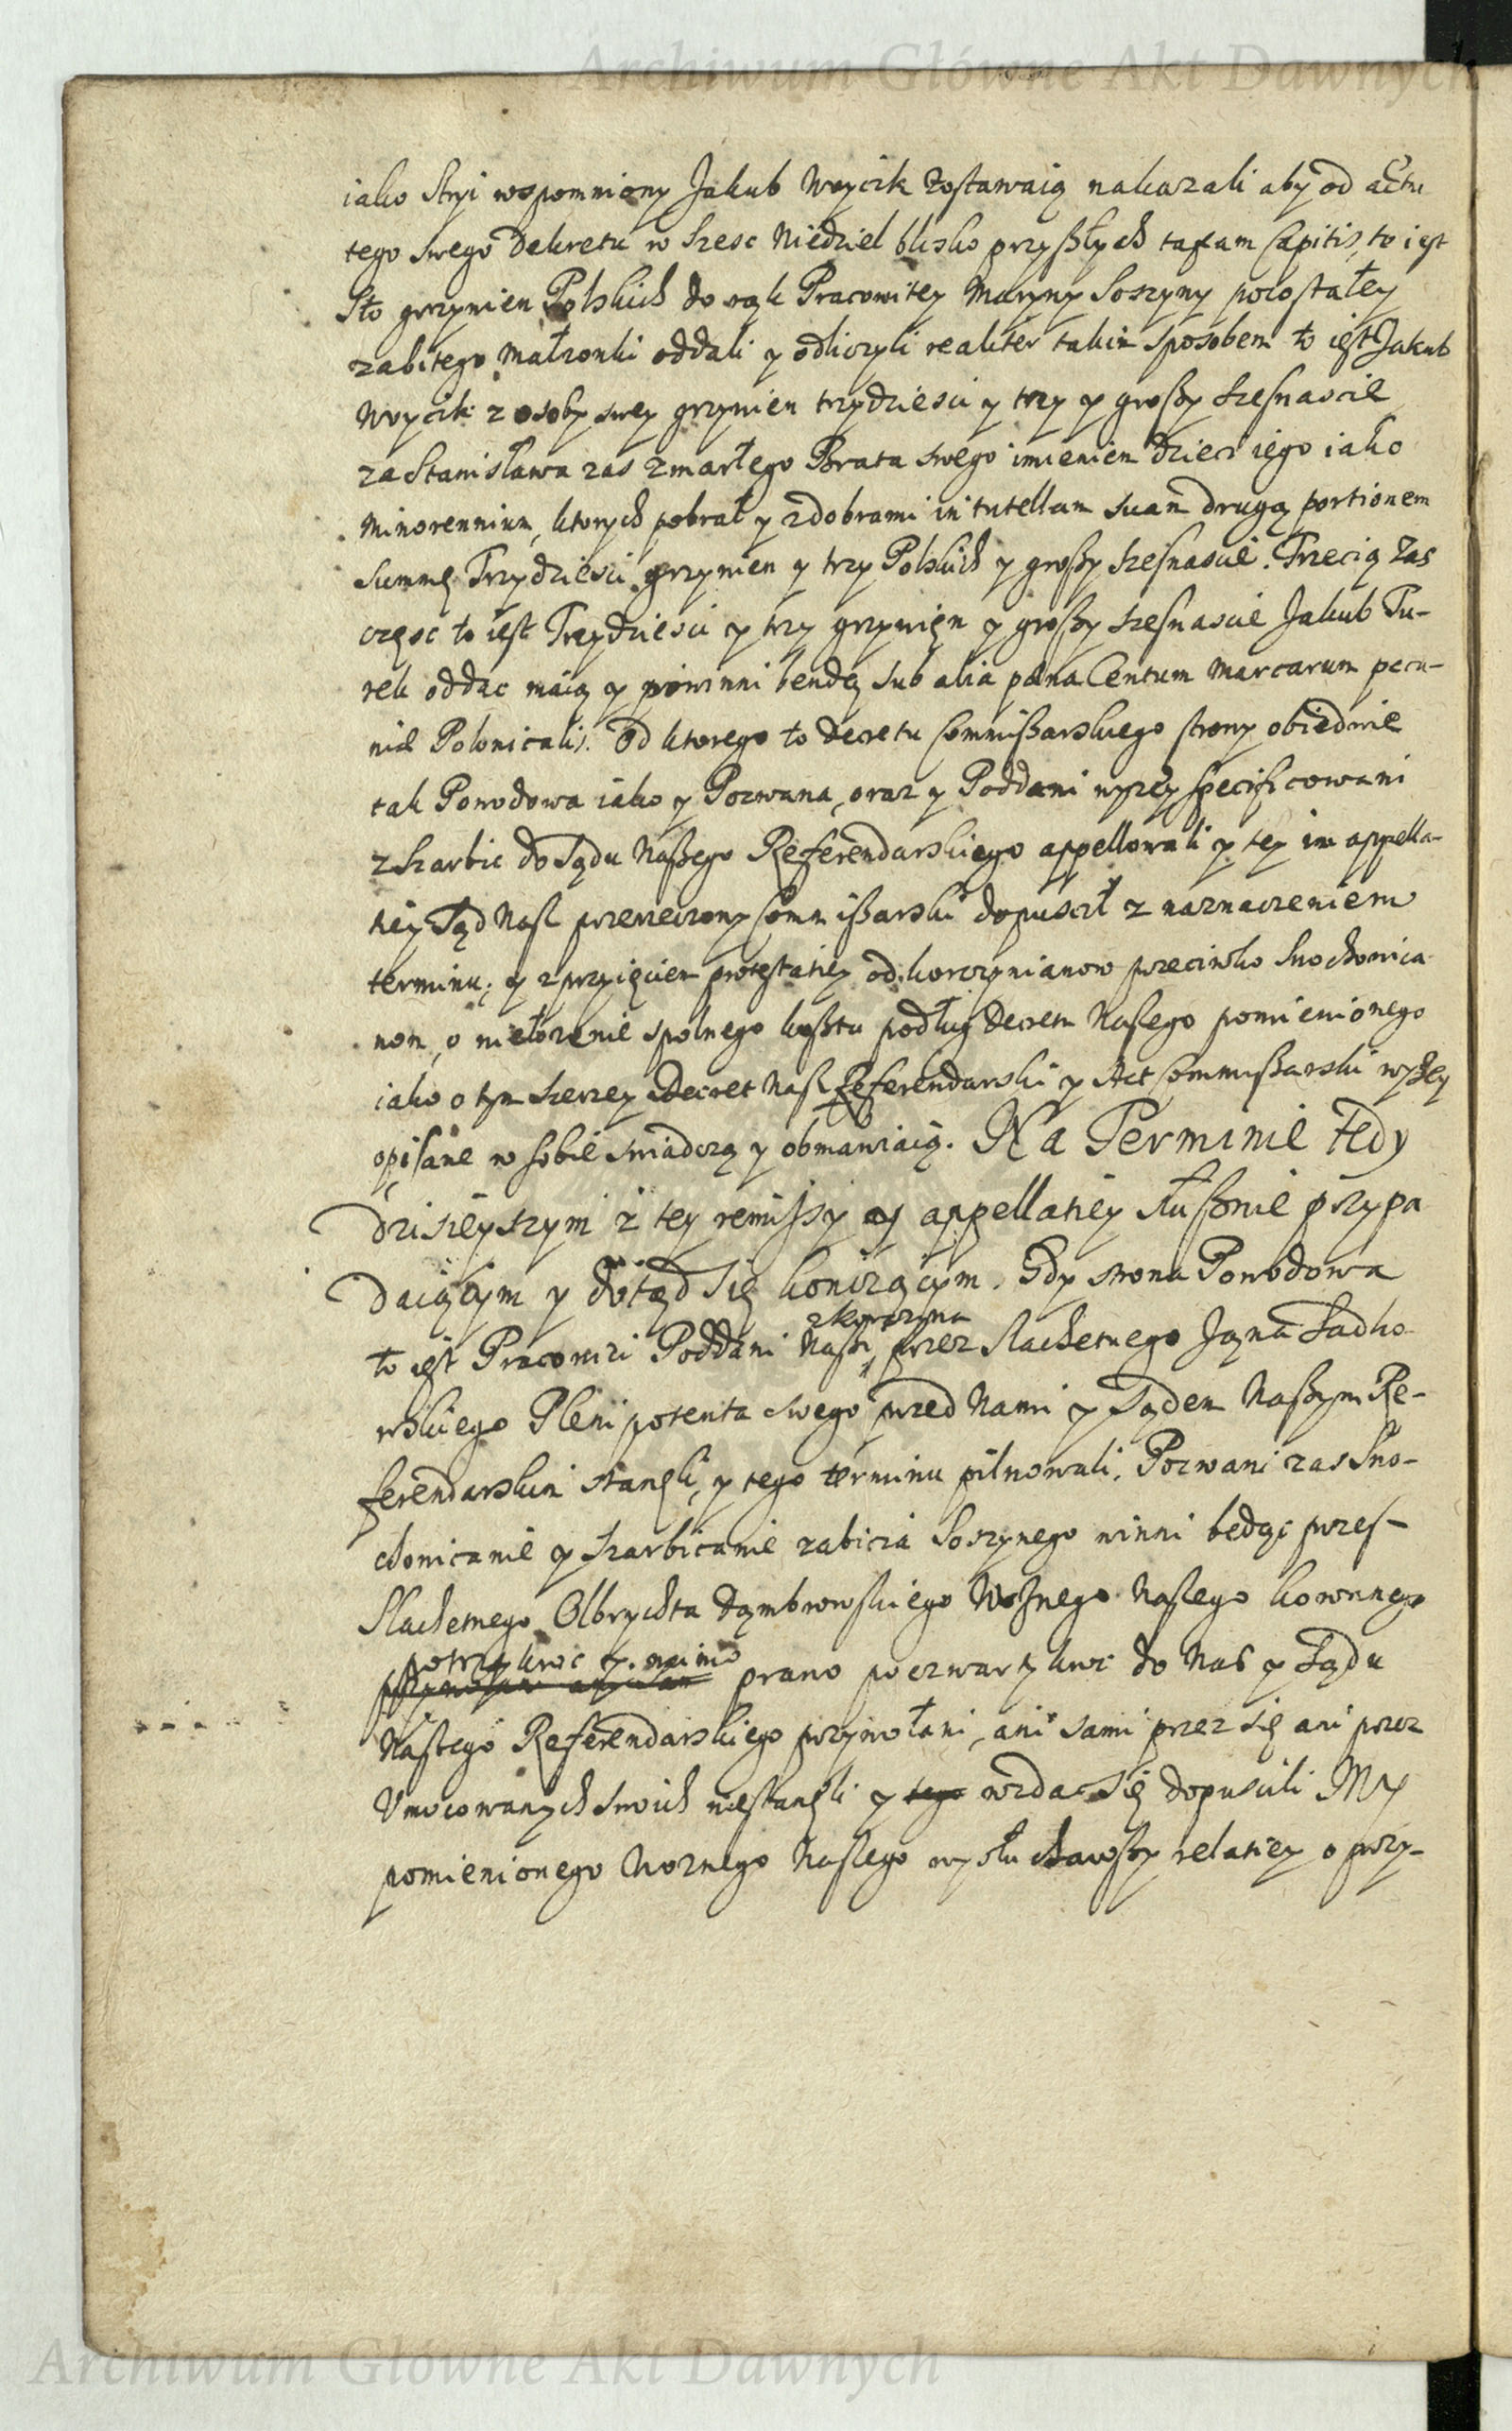 Archiwum Główne Akt Dawnych
iako stryi wspomniony Jakub Woycik zostawaią nakazali aby od actu
tego swego Dekretu w szesc Niedziel blisko przyszłych taxam Capitis, to iest
Sto grzywien Polskich do rąk Pracowitey Maryny Soszyny pozostałey
zabitego Małzonki oddali y odliczyli realiter takim sposobem to iest Jakub
Woycik z osoby swey grzywien trzydziesci y trzy y groszy szesnascie
za Stanisława zas zmarłego Brata swego imieniem dzieci iego iako
Minorennium, ktorych pobrał y z dobrami in tutellam suam drugą portionem
summę Trzydziesci grzywien y trzy Polskich y groszy szesnascie. Trzecią zas
częsc to iest Trzydziesci y trzy grzywien y groszy szesnascie Jakub Tu-
rek oddac maią y powinni bendą sub alia pœna Centum Marcarum pecu-
niæ Polonicalis. Od ktorego to Decretu Commissarskiego strony obiedwie
tak Powodowa iako y Pozwana, oraz y Poddani wyzey specificowani
z Skarbic do Sądu Naszego Referendarskiego appellowali y tey im appella-
tiey Sąd Nasz przerzeczony Commissarski dopuscił z naznaczeniem
terminu; y z przyięciem protestatiey od Korczynianow przeciwko Snochowica
nom, o niełozenie spolnego kosztu podług Decretu Naszego pomienionego
iako o tym szerzey Decret Nasz Referendarski y Act Commissarski wyzey
opisane w sobie swiadczą y obmawiaią. Na Terminie tedy
dzisieyszym z tey remissy y appellatiey słusznie przypa
daiącym y dotąd się kończącym. Gdy strona Powodowa
z Korczyna
to iest Pracowici Poddani Naszi, przez Slachetnego Jana Sadko-
wskiego Plenipotenta swego przed Nami y Sądem Naszym Re-
ferendarskim stanęli, y tego terminu pilnowali. Pozwani zas Sno-
chowicanie y Skarbicanie zabicia Soszynego winni będąc przez
Slachetnego Olbrychta Dąmbrowskiego Woznego Naszego
potrzykroc y mimo
prawo poczwartykroc do Nas y Sądu
Naszego Referendarskiego przywołani, ani sami przez się ani przez
Umocowanych swoich niestanęli y tego wzdac się dopuscili My
pomienionego Woznego Naszego wysłuchawszy relatiey o przy-
Archiwum Główne Akt Dawnych